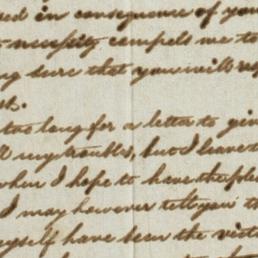 in consequence of you
necessity compels me to
sure that you will re
too long for a letter to giv
my troubles, but I leave t
when I hope to have the ple
I may however tell you th
myself have been the vict